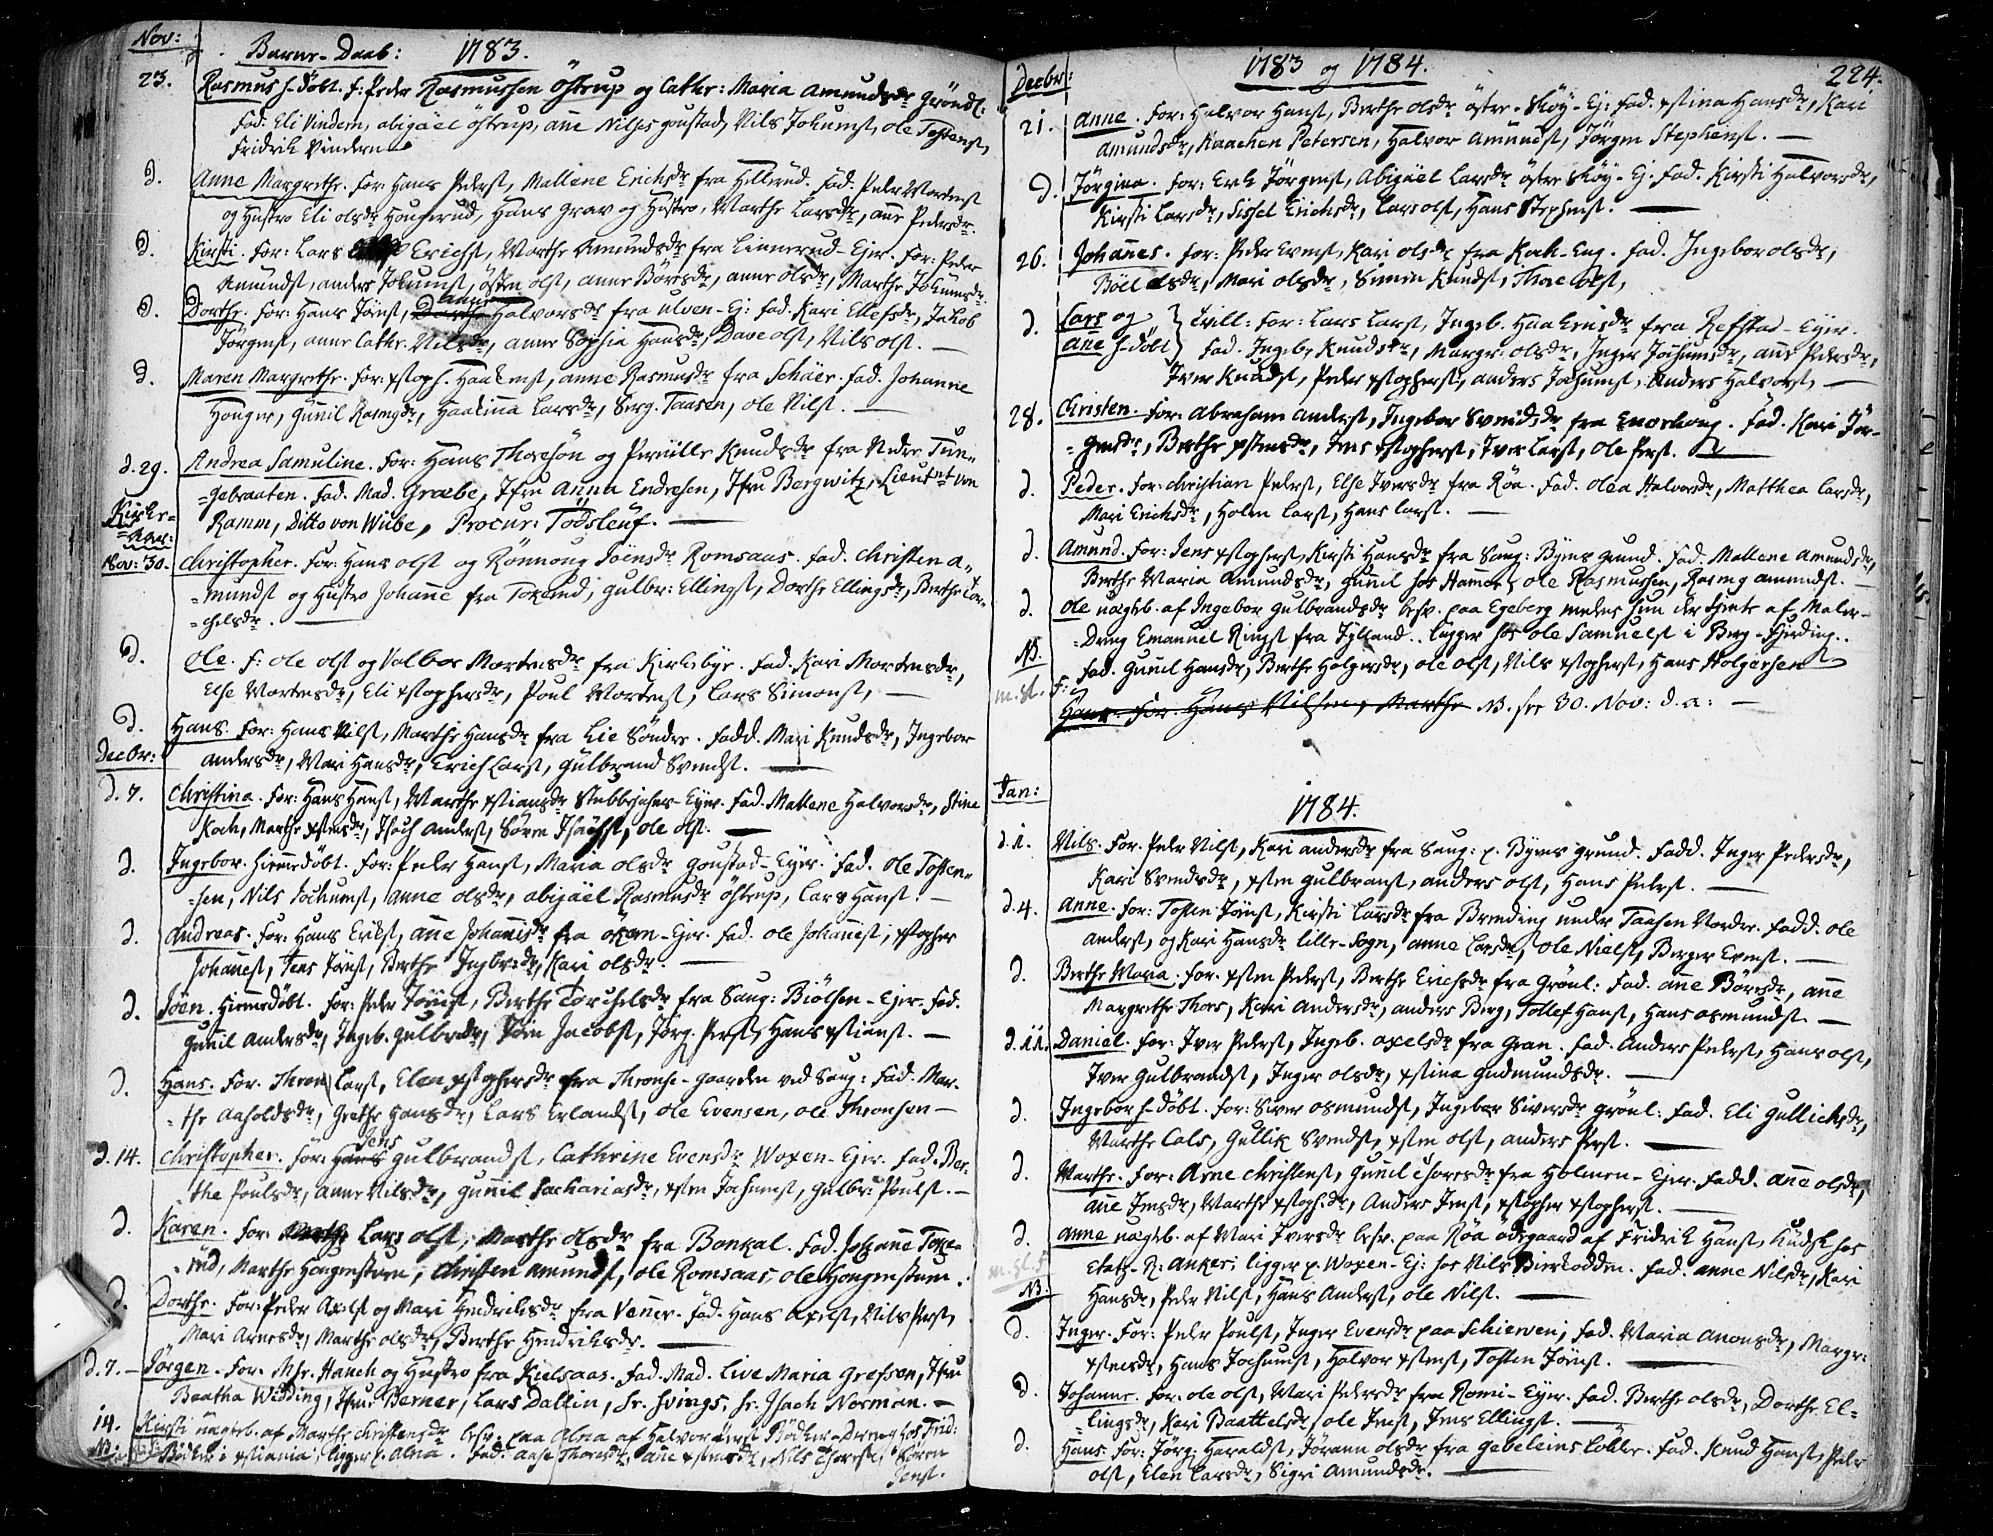 Nov: Barne-Daab: 1783.
23. Rasmus h-döbt. f: Peder Rasmussen Östrup og Cathr: Maria Amundsdr Gröndl.
Fad: Eli Vindern, abigäel östrup, ane Nilses goustad, Nils Jokumst, ole Tostenst,
Fridrik Vindern
d. Anne Margrethe. For: Hans Pederst, Mallene Erichsdr fra Hillerud. Fad. Peder Mortenst
og Hustro Eli olsdr Hougerud, Hans Grav og Hustro, Marthe Larsdr, ane Pedersdr.
d. Kirsti. For: Lars Erichst, Marthe Amundsdr fra Linnerud-Ejer. For: Peder
Amundst, anders Jokumst, östen olst, anne Börsdr, anne olsdr, Marthe Jokumsdr.
d. Dorthe. For: Hans Jönst, anne Halvorsdr fra ulven-Ej: Fad. Kari Ellefsdr, Jakob
Jörgenst, anne Cathr. Nilsdr, anne Sophia Hansdr, Dave olst, Nils olst. —
d. Maren Margrethe. For: xstoph. Haakenst, anne Rasmusdr fra Schäer. Fad. Johanne
Houger, Gunil Rasmgdr, Haakina Larsdr, Serg. Taasen, ole Nilst. —
d. 29. Andrea Samuline. For: Hans Thoresön og Pernille Knudsdr fra Nedre Tun-
-gebraaten. Fad. Mad. Græbe, Jfru Anna Endresen, Jfru Bergwitz, Lieutnt von
Ramm, Ditto von Wibe, Procur: Todsleuf. —
Kirke-
Aar:
Nov: 30. Christopher. For: Hans olst og Rönnoug Joensdr Romsaas. Fad. Christen A-
-mundst og Hustro Johane fra Tokerud, gulbr: Ellingst, Dorthe Ellingsdr, Berthe Tor-
-chelsdr. —
d. Ole. f: ole olst og Valbor Mortensdr fra Kirkebye. Fad. Kari Mortensdr,
Else Mortensdr, Eli xstophersdr, Poul Mortenst, Lars Simonst, —
d. Hans. For: Hans Nilst, Marthe Hansdr fra Lie Söndre. Fadd. Mari Knudsdr, Ingebor
Andersdr, Mari Hansdr, Erich Larst, Gulbrand Svendst. —
Decbr:
d. 7. Christina. For: Hans Hanst, Marthe xstiansdr Stubberjahns-Ejer. Fad. Mallene Halvorsdr, Stine
Koch, Marthe xstensdr, Isach Anderst, Sören Isachst, ole olst. —
d. Ingebor. Hiemedöbt. For: Peder Hanst, Maria olsdr goustad-Ejer. Fad. Ole Tosten-
-sen, Nils Jochumst, anne olsdr, abigäel Rasmusdr östrup, Lars Hanst. —
d. Andreas. For: Hans Erikst, ane Johanisdr fra okern-Ejer. Fad. ole Johanest, xstopher
Johanest, Jens Jönst, Berthe Ingbrdr, Kari olsdr. —
d. Jöen. Hiemedöbt. For: Peder Jönst, Berthe Torchelsdr fra Saug: Biölsen-Ejer. Fad.
Gunil Andersdr, Ingeb. Gulbrdr, Jöen Jacobst, Jörg. Perst, Hans xstianst. —
d. Hans. For. Thron Larst, Elen xstophersdr fra Thronse-gaarden ved Saug: Fad. Mar-
-the Aasoldsdr, Grethe Hansdr, Lars Erlandst, ole Evensen, ole Thronsen —
d. 14. Christopher. For: Jens gulbrandst, Cathrine Evensdr Woxen-Ejer. Fad. Ber-
-the Poulsdr, anne Nilsdr, gunil Sachariasdr, xsten Jochumst, Gulbr. Poulst. —
d. Karen. For: Lars olst, Marthe olsdr fra Bonkal. Fad. Johanne Toke-
-rud, Marthe Hougenstuen, Christen Amundst, ole Romsaas ole Hougenstuen.
d. Dorthe. For: Peder Axelst og Mari Hendriksdr fra Vener. Fad. Hans Axelst, Nils Perst,
Mari Arnesdr, Marthe olsdr, Berthe Hendriksdr. —
d. 7. — Jörgen. For. Mhr. Hauch og Hustro fra Kielsaas. Fad. Mad. Live Maria Grefsen, Jfru
Baatha Widding, Jfru Berner, Lars Dallin, Hr. Svings, Hr. Isach Norman. —
14. Kirsti uægteb. af Marthe Christensdr besv. paa Alna af Halvor Bödker-Dreng hos Frid:
NB. Bödker i xstiania; ligger p. Alna. Fad. Aase Thoresdr, ane xstensdr, Nils Thorest, Sören
Jenst.
Decbr: 1783 og 1784. 224.
21. Anne. For: Halvor Hanst, Berthe olsdr östre-Höy-Ej: Fad. xstina Hansdr, Kari
Amundsdr, Maachen Petersen, Halvor Amundst, Jörgen Stephenst. —
d. Jörgina. For: Erk Jörgenst, Abigäel Larsdr östre Höy-Ej. Fad. Kirsti Halvorsdr,
Kirsti Larsdr, Sissel Erichsdr, Lars olst, Hans Stephenst. —
26. Johanes. For: Peder Evenst, Kari olsdr fra Rok-Eng. Fad. Ingebor olsdr,
Böel olsdr, Mari olsdr, Simen Knudst, Thore olst,
d. Lars og } Tvill: For: Lars Larst, Ingeb. Haakensdr fra Refstad-Ejer.
Ane h-döbt } Fad. Ingebr Knudsdr, Margr: olsdr, Inger Jochumsdr, ane Pedersdr,
Iver Knudst, Peder xstopherst, anders Jochumst, Anders Halvorst, —
28. Christen. For: Abraham Anderst, Ingebor Svendsdr fra Enershoug. Fad. Kari Jör-
-gensdr, Berthe xstensdr, Jens xstopherst, Iver Larst, Ole Perst. —
d. Peder. For: Christian Pederst, Else Iversdr fra Röa. Fad. Olea Halvorsdr, Matthea Larsdr,
Mari Erichsdr, Holen Larst, Hans Larst. —
d. Amund. For: Jens xstopherst, Kirsti Hansdr fra Saug: Byens Grund. Fad. Mallene Amundsdr,
Berthe Maria Amundsdr, Gunil hos Hamer, ole Rasmussen, Rasmg Amundst. —
d. Ole uægteb. af Ingebor Gulbrandsdr besv. paa Egeberg meden hun der tjente af Maler-
NB. -Dreng Emanuel Ringst fra Jylland.. ligger hos ole Samuelst i Berg-Fjerding..
Fad. Gunil Hansdr, Berthe Holgersdr, ole olst, Nils xstopherst, Hans Holgersen
m. sl. F:
Hans. For. Hans Nilsen, Marthe NB. see 30. Nov: d. a: —
Jan: 1784.
d. 1. Nils. For. Peder Nilst, Kari Andersdr fra Saug: p. Byens Grund. Fadd. Inger Pedersdr,
Kari Svendsdr, xsten Gulbranst, anders olst, Hans Pederst. —
d. 4. Anne. For: Tosten Jönst, Kirsti Larsdr fra Brending under Taasen Nordre. Fadd. ole
Anderst, og Kari Hansdr lille-Sogn, anne Larsdr, ole Nielst, Berger Evenst. —
d. Berthe Maria. For. xsten Pederst, Berthe Erichsdr fra Grönl: Fad. ane Börsdr, ane
Margrethe Thors, Kari Andersdr, anders Berg, Tollef Hanst, Hans osmundst. —
d. 11. Daniel. For: Iver Pederst, Ingeb. axelsdr fra Gran. Fad. Anders Pederst, Hans olst,
Iver Gulbrandst, Inger olsdr, xstina Gudmundsdr. —
d. Ingebor h-döbt. For: Siver osmundst, Ingebor Siversdr Grönl: Fad. Eli Gullichsdr,
Marthe Cals, Gullik Svendst, xsten olst, anders Perst. —
d. Marthe. For: Arne Christenst, Gunil Thoresdr fra Holmen-Ejer. Fadd. ane olsdr,
ane Jensdr, Marthe xstophdr, Anders Jenst, xstopher xstopherst. —
d. Anne uægteb. af Mari Iversdr besv. paa Röa ödegaard af Fridrik Hanst, Kudsk hos
m. sl. F Etatz-R: Anker; ligger p. Woxen-Ej: hos Nils Bierkodden. Fad. anne Nilsdr, Kari
NB. Hansdr, Peder Nilst, Hans Anderst, ole Nilst. —
d. Inger. For: Peder Poulst, Inger Evensdr paa Schierven; Fad. Maria Anonsdr, Margr:
xstensdr, Hans Jochumst, Halvor xstenst, Tosten Jönst. —
d. Johanne. For: ole olst, Mari Pedersdr fra Romi-Ejer. Fad. Berthe olsdr, Dorthe El-
-lingsdr, Kari Baattelsdr, ole Jenst, Jens Ellingst. —
d. Hans. For: Jörg: Haraldst, Jörann olsdr fra Gebeleins Lökke. Fad. Knud Hanst, Peder
olst, Elen Larsdr, Sigri Amundsdr. —